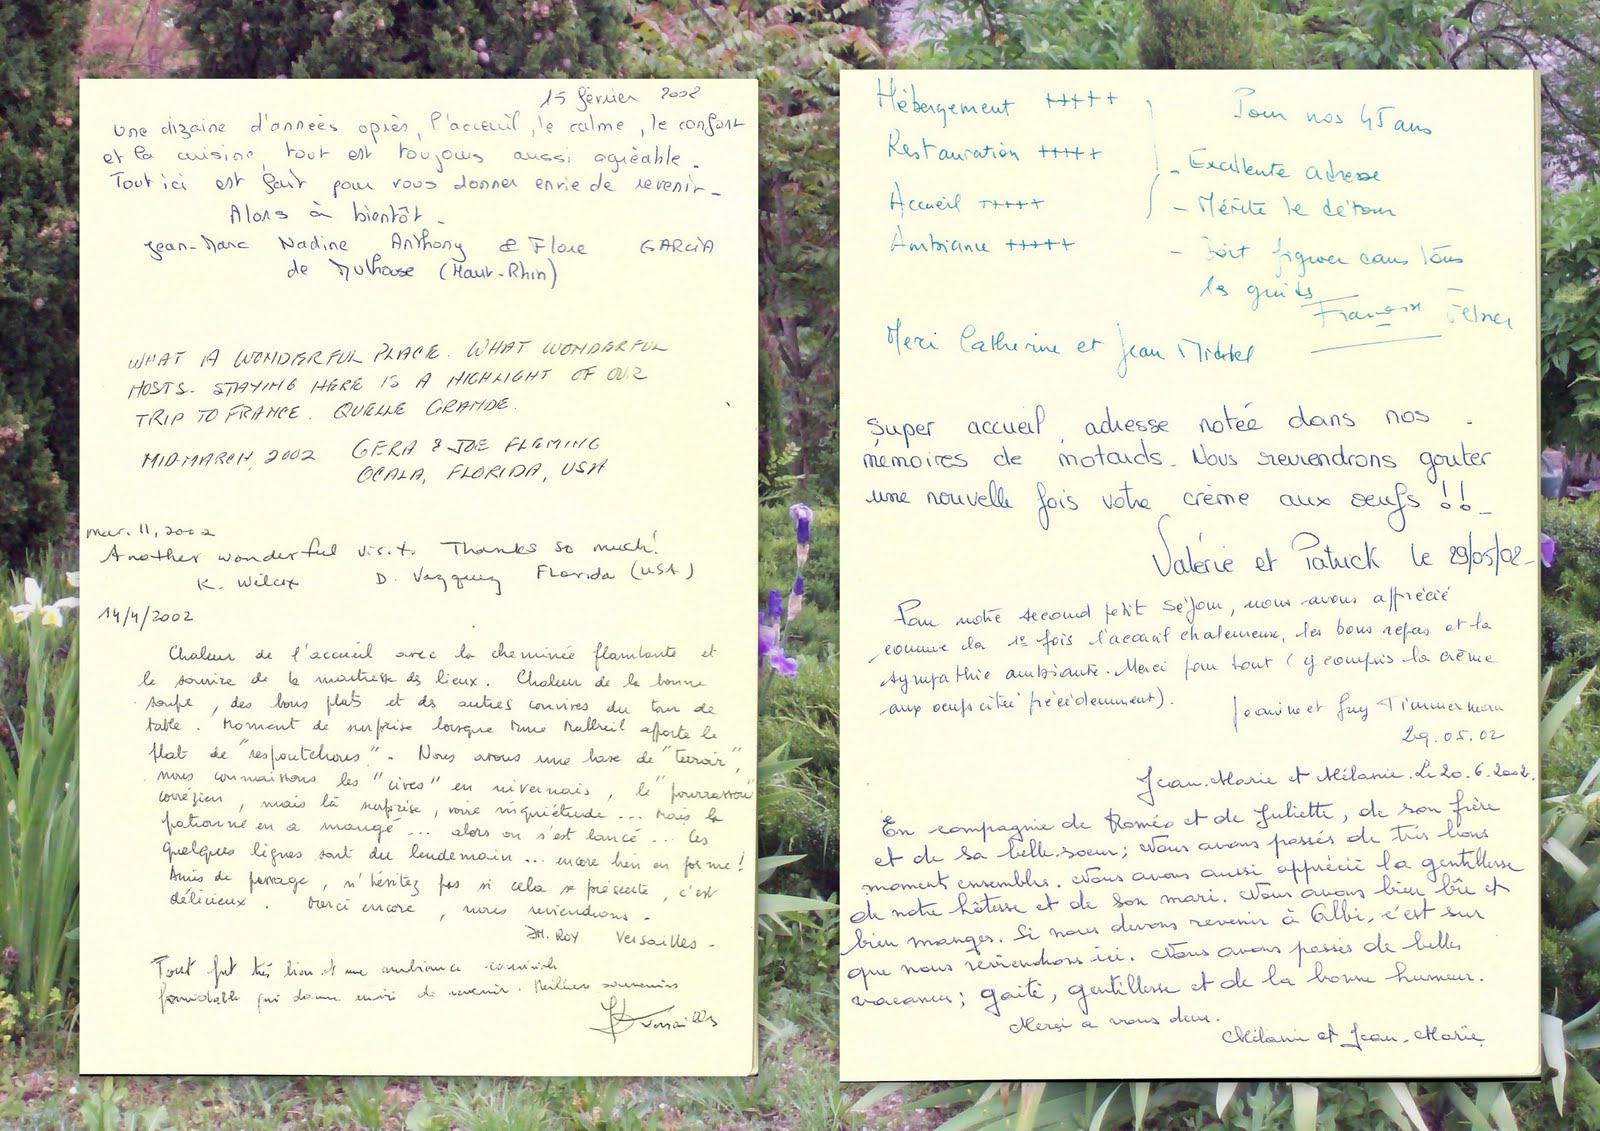 15 février 2002
Une dizaine d'années après, l'acceuil, le calme, le confort
et la cuisine, tout est toujours aussi agréable.
Tout ici est fait pour vous donner envie de revenir -
Alors à bientôt -
Jean-Marc Nadine Anthony & Flore GARCIA
de Mulhouse (Haut-Rhin)
WHAT A WONDERFUL PLACE. WHAT WONDERFUL
HOSTS. STAYING HERE IS A HIGHLIGHT OF OUR
TRIP TO FRANCE. QUELLE GRANDE.
MID-MARCH, 2002 GERA & JOE FLEMING
OCALA, FLORIDA, USA
Mar. 11, 2002
Another wonderful visit. Thanks so much!
K. Wilcox D. Vazquez Florida (USA)
14/4/2002
Chaleur de l'accueil avec la cheminée flambante et
le sourire de la maitresse des lieux. Chaleur de la bonne
soupe, des bons plats et des autres convives du tour de
table. Moment de surprise lorsque Mme apporte le
plat de "respountchous". - Nous avons une base de "terroir",
nous connaissons les "cives" en nivernais, le "pourrassou"
corrézien, mais là surprise, voire inquiétude... Mais la
patronne en a mangé... alors on s'est lancé... Ces
quelques lignes sont du lendemain... encore bien en forme!
Amis de passage, n'hésitez pas si cela se présente, c'est
délicieux. Merci encore, nous reviendrons.
JM. ROY Versailles -
Tout fut très bien et une ambiance conviviale
formidable qui donne envie de revenir. Meilleurs souvenirs
Hébergement +++++
Restauration +++++
Accueil +++++
Ambiance +++++
Pour nos 45 ans
- Excellente adresse
- Mérite le détour
- Doit figurer dans tous
les guides
Merci Catherine et Jean Michel
Super accueil, adresse notée dans nos
mémoires de motards. Nous reviendrons gouter
une nouvelle fois votre crème aux oeufs !!
Valérie et Patrick le 29/05/02
Pour notre second petit séjour, nous avons apprécié
comme la 1e fois l'accueil chaleureux, les bons repas et la
sympathie ambiante. Merci pour tout (y compris la crème
aux oeufs citée précédemment).
Jeanine et Guy Timmerman
29.05.02
Jean-Marie et Mélanie. Le 20.6.2002.
En compagnie de Roméo et de Juliette, de son frère
et de sa belle-soeur; Nous avons passés de très bons
moment ensembles. Nous avons aussi apprécié la gentillesse
de notre hôtesse et de son mari. Nous avons bien bûe et
bien manges. Si nous devons revenir à Albi, c'est sur
que nous reviendrons ici. Nous avons passés de belles
vacances; gaité, gentillesse et de la bonne humeur.
Merçi a vous deux.
Mélanie et Jean-Marie